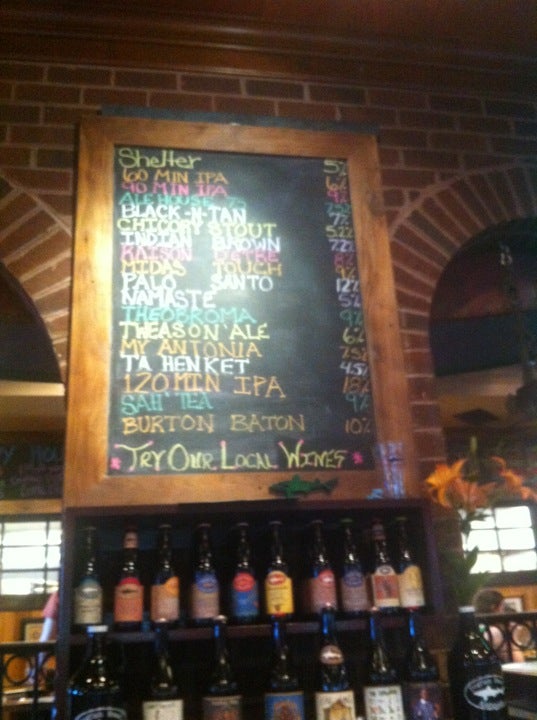 Shelter 5%
60 MIN IPA 6%
90 MIN IPA 9%
ALE HOUSE 75
BLACK-N-TAN 7%
CHICORY STOUT 5.2%
INDIAN BROWN 7.2%
RAISON D'ETRE 8%
MIDAS TOUCH 9%
PALO SANTO 12%
NAMASTE 5%
THEOBROMA 9%
THEASON ALE 6%
MY ANTONIA 7.5%
TA HENKET 4.5%
120 MIN IPA 18%
SAH' TEA 9%
BURTON BATON 10%
TRY OUR LOCAL WINES